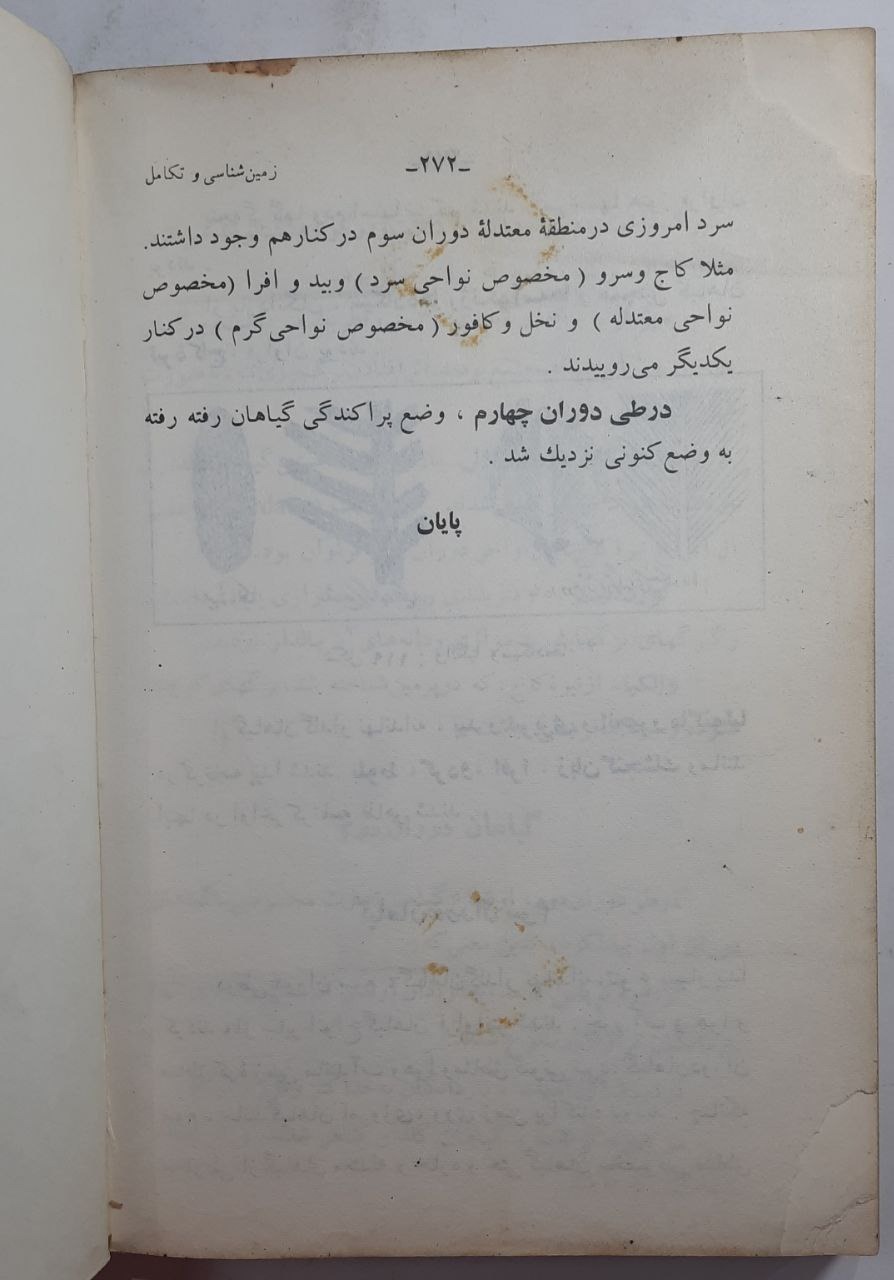 -۲۷۲- زمین‌شناسی و تکامل
سرد امروزی درمنطقهٔ معتدلهٔ دوران سوم درکنارهم وجود داشتند.
مثلا کاج وسرو ( مخصوص نواحی سرد ) وبید و افرا (مخصوص
نواحی معتدله ) و نخل وکافور ( مخصوص نواحی‌گرم ) درکنار
یکدیگر می‌روییدند .
درطی دوران چهارم ، وضع پراکندگی گیاهان رفته رفته
به وضع کنونی نزدیك شد .
پایان